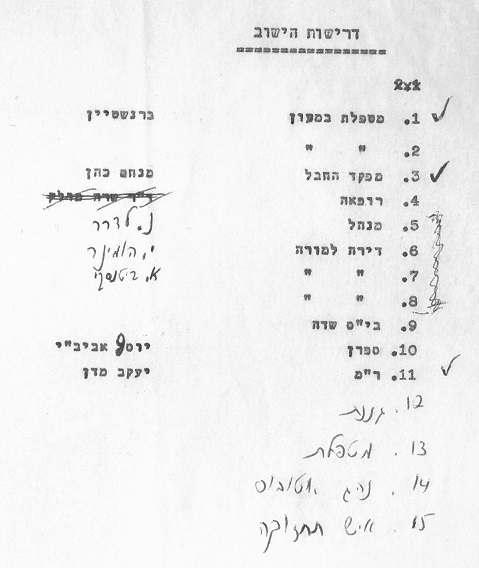 דרישות הישוב
1. מטפלת במעון ברנשטיין
2. " "
3. מפקד החבל מנחם כהן
4. רופאה ד"ר שרה
5. מנהל נ. לדרר
6. דירה למורה י. הומינר
7. " " א. ביטנסקי
8. " "
9. בי"ס שדה
10. ספרן יוסף אביב"י
11. ר"מ יעקב מדן
12. גננת
13. מטפלת
14. נהג אוטובוס
15. איש תחזוקה